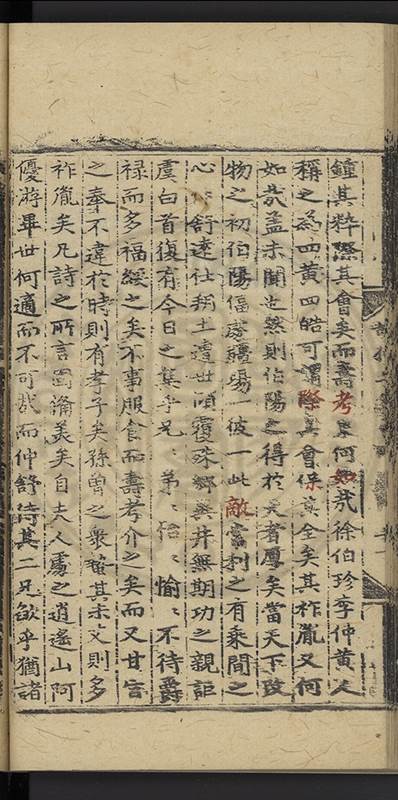 鐘其粹際其會矣而壽考又何如㦲徐伯珍李仲黄人
稱之為四黄四皓可謂際其會保其全矣其祚胤又何
如㦲孟未聞也然則伯陽之得於天者厚矣當天下改
物之初伯陽偪處疆場一彼一此敵嘗利之有乗間之
心望舒逺仕朔土遭世傾覆殊鄉無井無期功之親詎
虞白首復有今日之集乎兄〻弟〻怡〻愉〻不待爵
禄而多福綏之矣不事服食而壽考介之矣而又甘旨
之奉不違於時則有孝子矣孫曽之衆種其未艾則多
祚胤矣凡詩之所言図備美矣自夫人處之逍遥山阿
優游畢世何適而不可㦲而仲舒侍其二兄欿乎猶諸